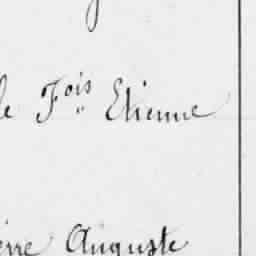 le Fois Etienne
erre Auguste